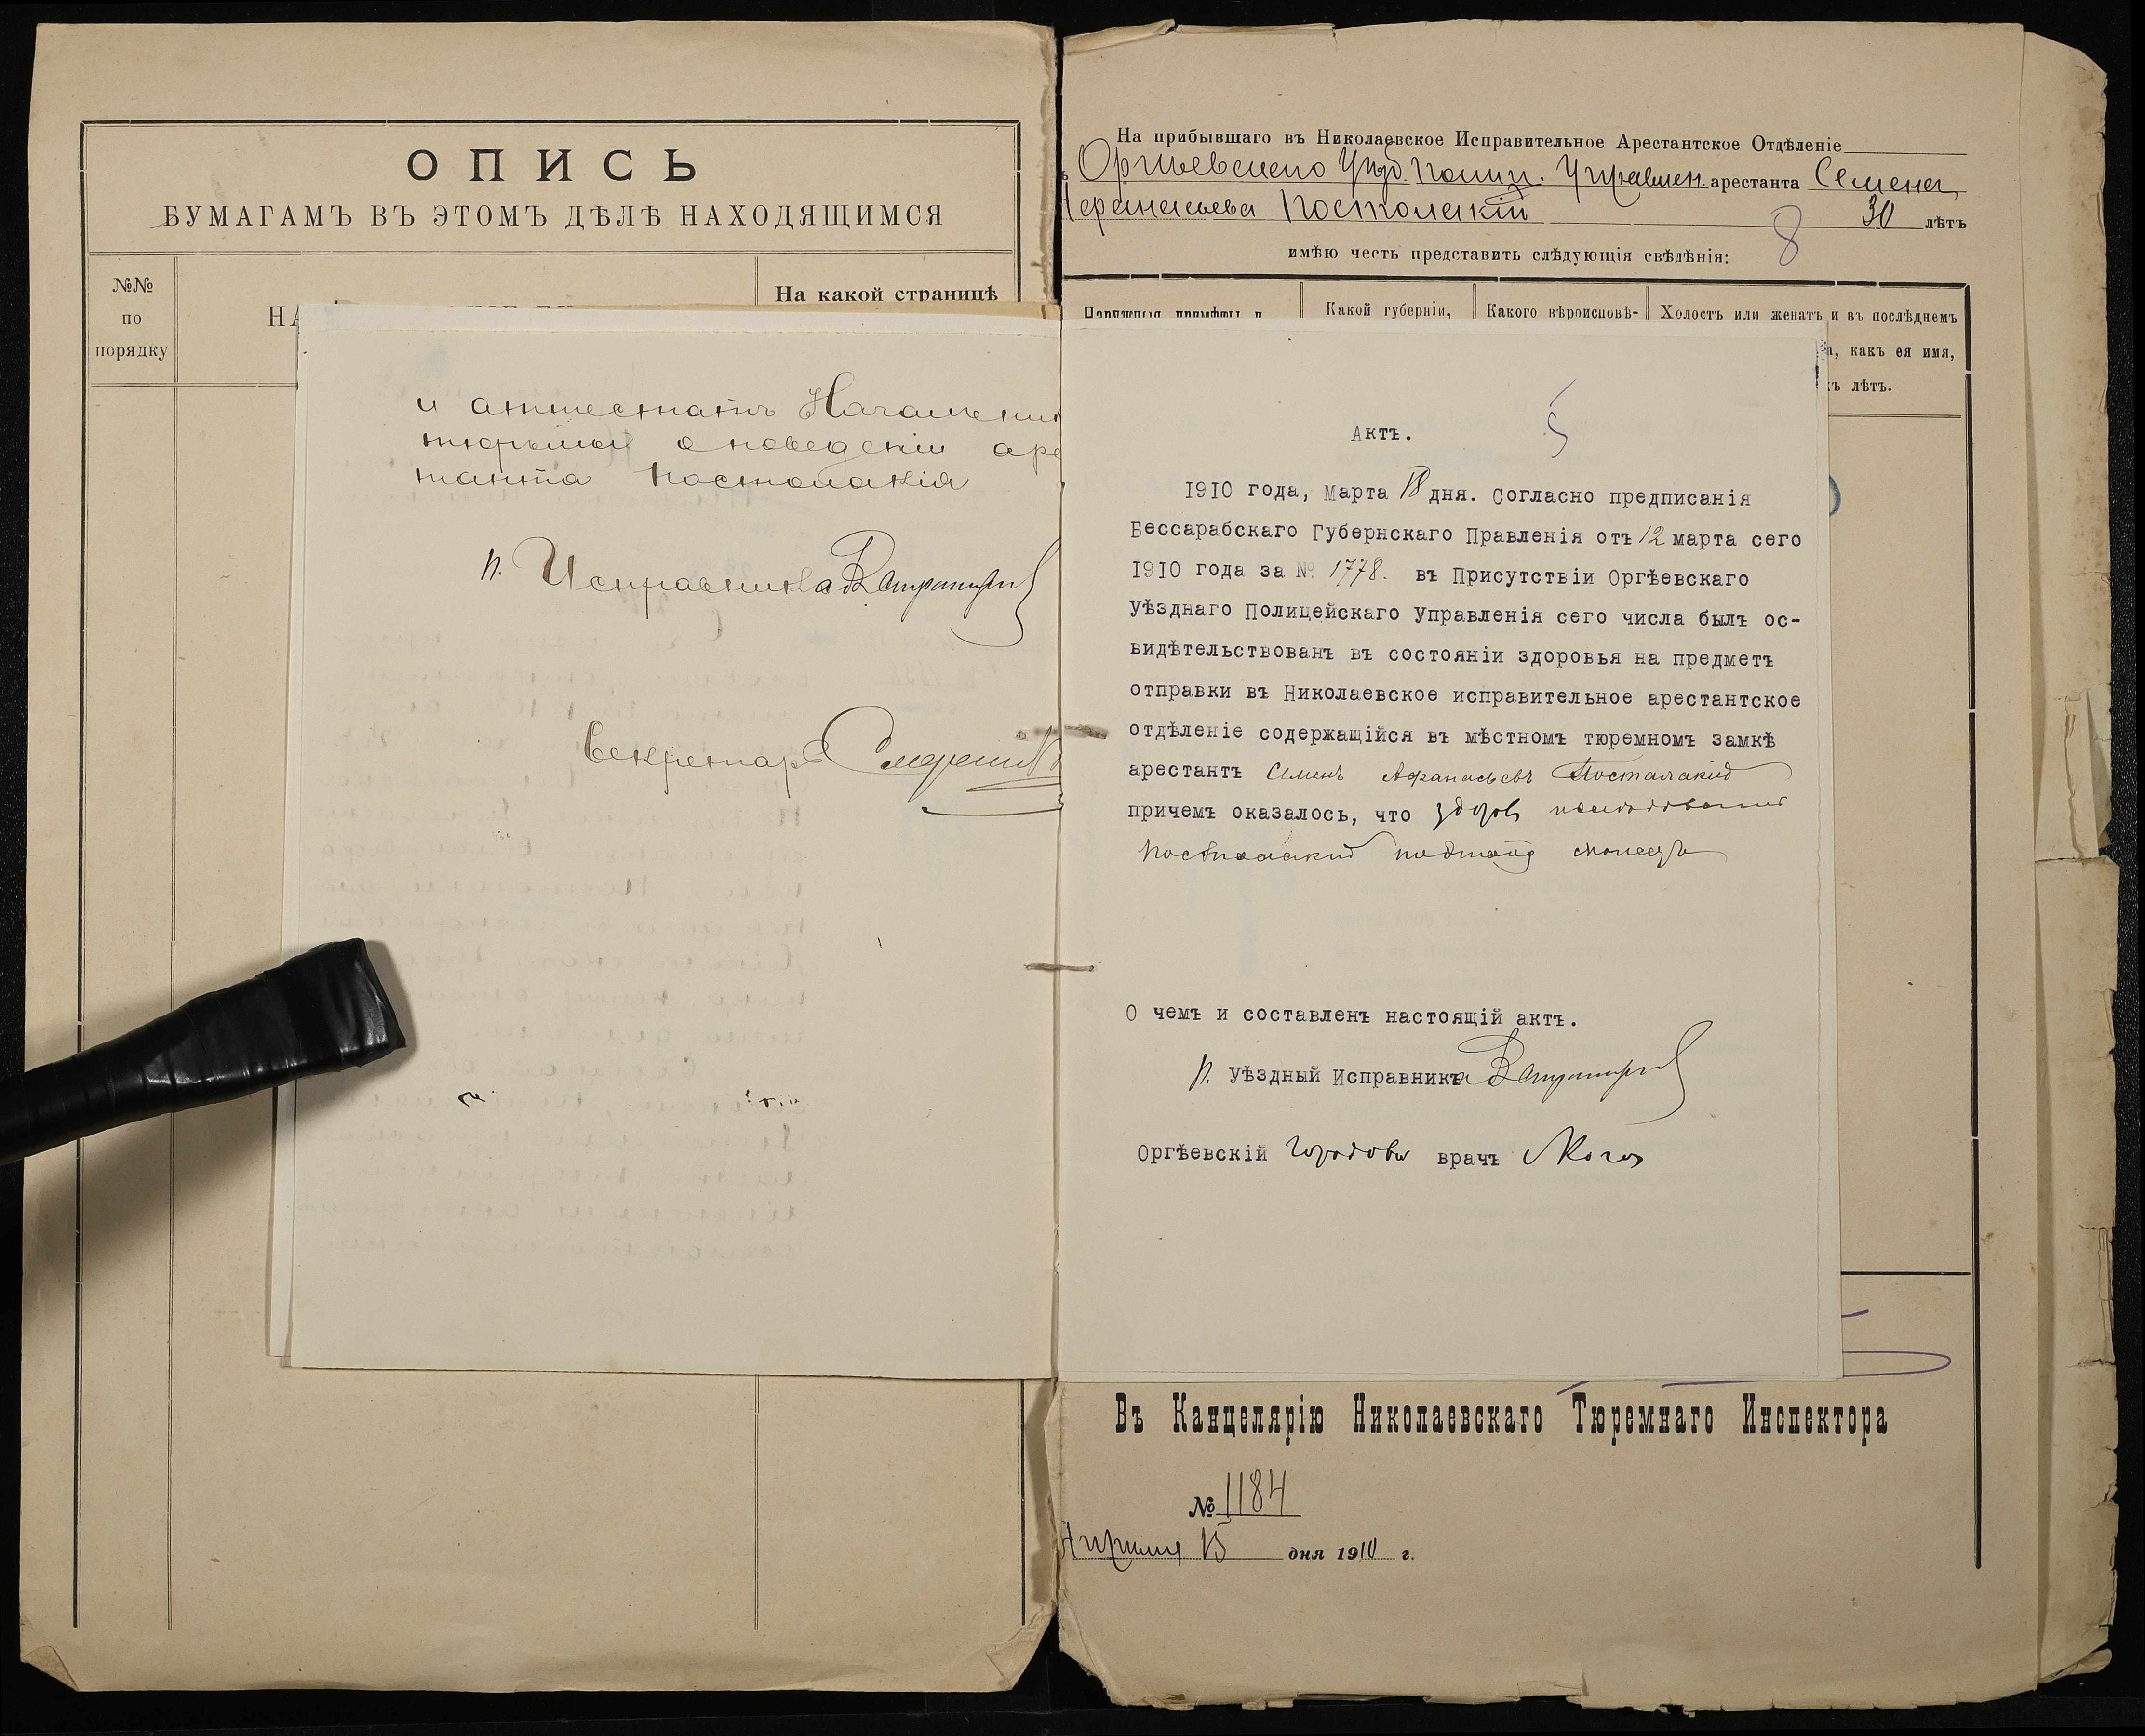 ОПИСЬ
БУМАГАМЪ ВЪ ЭТОМЪ ДѢЛѢ НАХОДЯЩИМСЯ
№№
по
порядку
НА
На какой страницѣ
и аттестатъ Начальник
тюрьмы о поведеніи аре
танта Постолакія
п. Исправника
Секретарь
На прибывшаго въ Николаевское Исправительное Арестантское Отдѣленіе
Оргѣевскаго Уѣзд. Полиц. Управлен. арестанта Семена
Афанасьева Постолакій 30 лѣтъ
8
имѣю честь представить слѣдующія свѣдѣнія:
Наружныя примѣты и
Какой губерніи,
Какого вѣроисповѣ-
Холостъ или женатъ и въ послѣднемъ
а, какъ ея имя,
ъ лѣтъ.
5
Актъ.
1910 года, марта 18 дня. Согласно предписанія
Бессарабскаго Губернскаго Правленія отъ 12 марта сего
1910 года за № 1778. въ Присутствіи Оргѣевскаго
уѣзднаго Полицейскаго Управленія сего числа былъ ос-
видѣтельствованъ въ состояніи здоровья на предметъ
отправки въ Николаевское исправительное арестантское
отдѣленіе содержащійся въ мѣстномъ тюремномъ замкѣ
арестантъ Семенъ Афанасьевъ Постолакій
причемъ оказалось, что здоровъ
Постолакій
О чемъ и составленъ настоящій актъ.
п. уѣздный Исправника
Оргѣевскій Городовой врачъ
Въ Канцелярію Николаевскаго Тюремнаго Инспектора
№ 1184
Апрѣля 15 дня 1910 г.